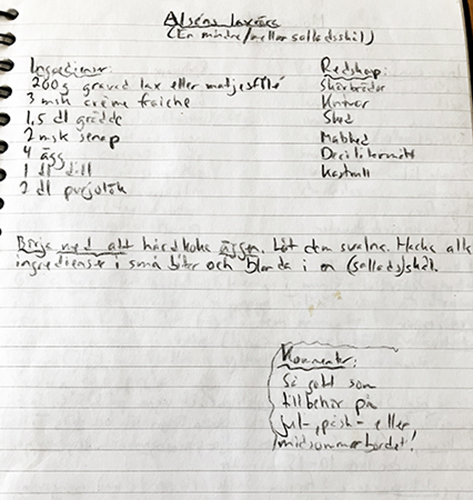 Alséns laxröra
(En mindre/mellan salladsskål)
Ingredienser:
200g gravad lax eller matjesfilé
3 msk crème fraiche
1,5 dl grädde
2 msk senap
4 ägg
1 dl dill
2 dl purjolök
Redskap:
Skärbrädor
Knivar
Sked
Matsked
Decilitermått
Kastrull
Börja med att hårdkoka äggen. Låt dem svalna. Hacka alla
ingredienser i små bitar och blanda i en (sallads)skål.
Kommentar:
Så gott som
tillbehör på
jul-, påsk- eller
midsommarbordet!